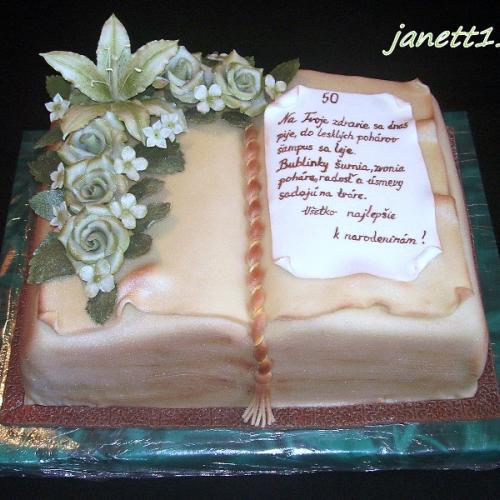 janett1.
50
Na Tvoje zdravie sa dnes
pije, do lesklých pohárov
šampus sa leje.
Bublinky šumia, zvonia
poháre, radosť a úsmevy
sadajú na tváre.
Všetko najlepšie
k narodeninám!